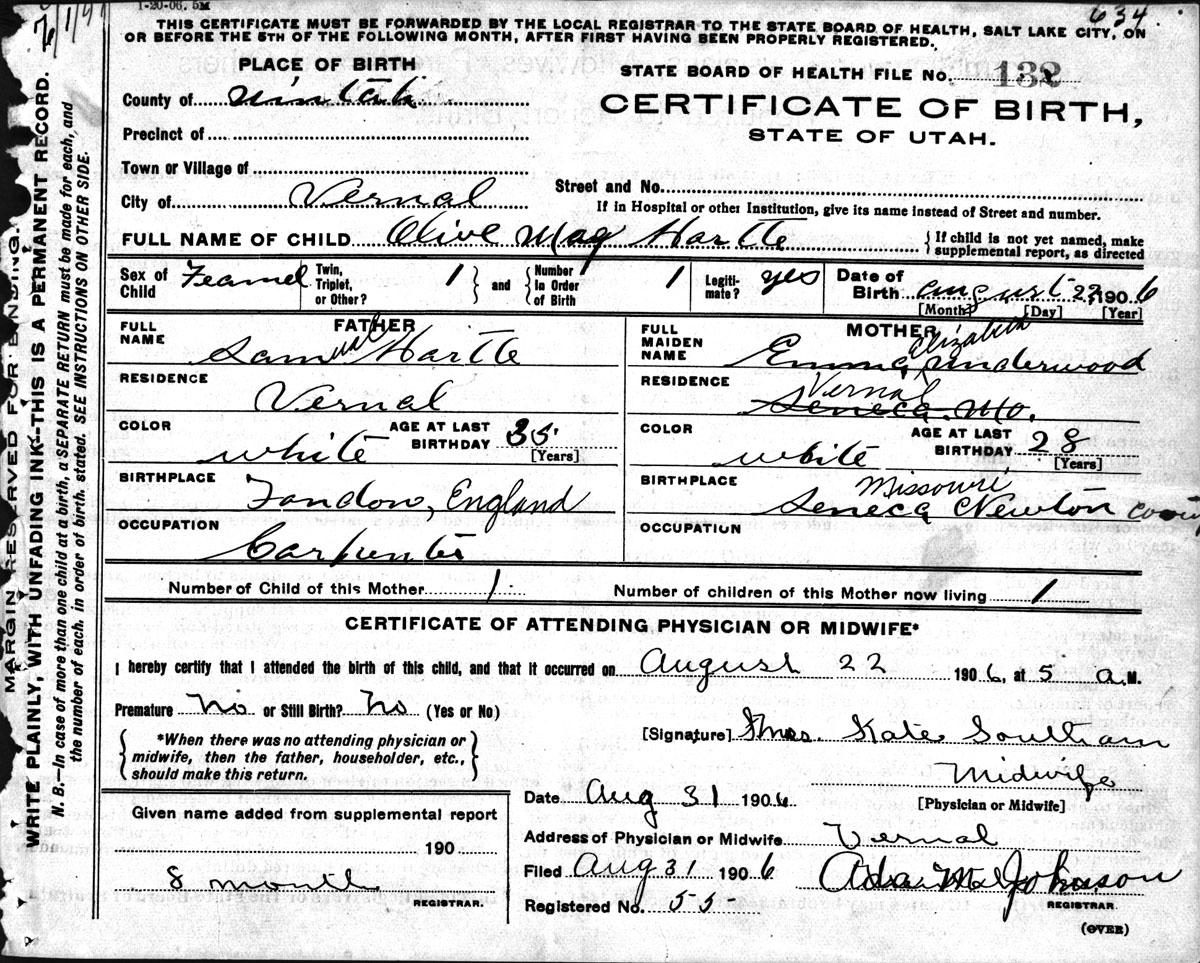 1-20-06. 5M
634.
THIS CERTIFICATE MUST BE FORWARDED BY THE LOCAL REGISTRAR TO THE STATE BOARD OF HEALTH, SALT LAKE CITY, ON
OR BEFORE THE 5TH OF THE FOLLOWING MONTH, AFTER FIRST HAVING BEEN PROPERLY REGISTERED.
MARGIN RESERVED FOR BINDING.
WRITE PLAINLY, WITH UNFADING INK—THIS IS A PERMANENT RECORD.
N. B.—In case of more than one child at a birth, a SEPARATE RETURN must be made for each, and
the number of each, in order of birth, stated. SEE INSTRUCTIONS ON OTHER SIDE.
PLACE OF BIRTH
STATE BOARD OF HEALTH FILE No. 132
County of Uintah
CERTIFICATE OF BIRTH,
STATE OF UTAH.
Precinct of
Town or Village of
City of Vernal
Street and No.
If in Hospital or other Institution, give its name instead of Street and number.
FULL NAME OF CHILD Olive May Hartle
{If child is not yet named, make
supplemental report, as directed
Sex of Child Feamel Twin, Triplet, or Other? 1 } and { Number In Order of Birth 1 Legiti-mate? yes Date of Birth august 22, 1906
[Month] [Day] [Year]
FATHER
FULL NAME Samual Hartle
RESIDENCE Vernal
COLOR white AGE AT LAST BIRTHDAY 35 [Years]
BIRTHPLACE England
OCCUPATION Carpenter
MOTHER
FULL MAIDEN NAME Emma Elizabeth Underwood
RESIDENCE Vernal Seneca. Mo.
COLOR white AGE AT LAST BIRTHDAY 28 [Years]
BIRTHPLACE Missouri
Seneca Newton
OCCUPATION
Number of Child of this Mother 1. Number of children of this Mother now living 1
CERTIFICATE OF ATTENDING PHYSICIAN OR MIDWIFE*
I hereby certify that I attended the birth of this child, and that it occurred on August 22 1906, at 5 a.M.
Premature No or Still Birth? No (Yes or No)
{ *When there was no attending physician or
midwife, then the father, householder, etc.,
should make this return. }
[Signature] Mrs. Kate Southam
Midwife
[Physician or Midwife]
Date Aug 31 1906
Address of Physician or Midwife Vernal
Filed Aug 31 1906 Ada M Johnson
REGISTRAR.
Registered No. 55
(OVER)
Given name added from supplemental report
190
8 month
REGISTRAR.